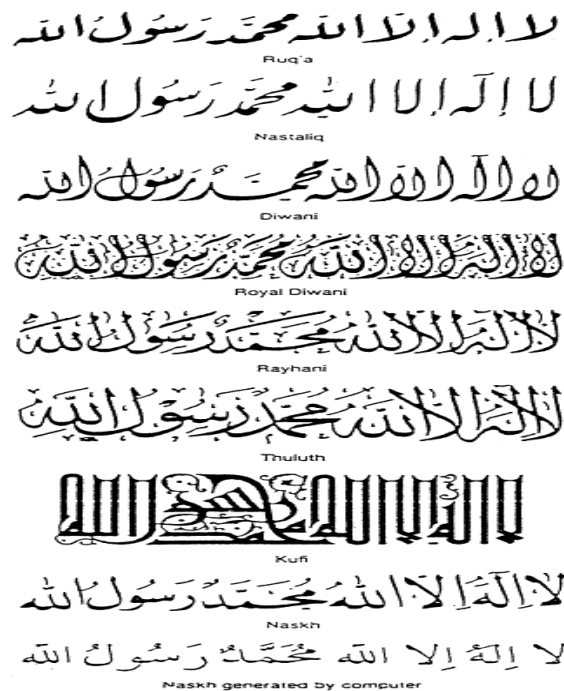 لا اله الا الله محمد رسول الله
Ruq'a
لا اله الا الله محمد رسول الله
Nastaliq
لا اله الا الله محمد رسول الله
Diwani
لا اله الا الله محمد رسول الله
Royal Diwani
لا اله الا الله محمد رسول الله
Rayhani
لا اله الا الله محمد رسول الله
Thuluth
لا اله الا الله محمد رسول الله
Kufi
لا اله الا الله محمد رسول الله
Naskh
لا إلهَ إلا الله محمّدٌ رسولُ الله
Naskh generated by computer